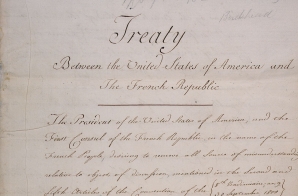 Treaty
Between the United States of America and
The French Republic
The President of the United States of America, and the
First Consul of the French Republic, in the name of the
French People, desiring to remove all Source of misunderstanding
relative to objects of discussion, mentioned in the Second and
fifth Articles of the Convention of the
30 September 1800